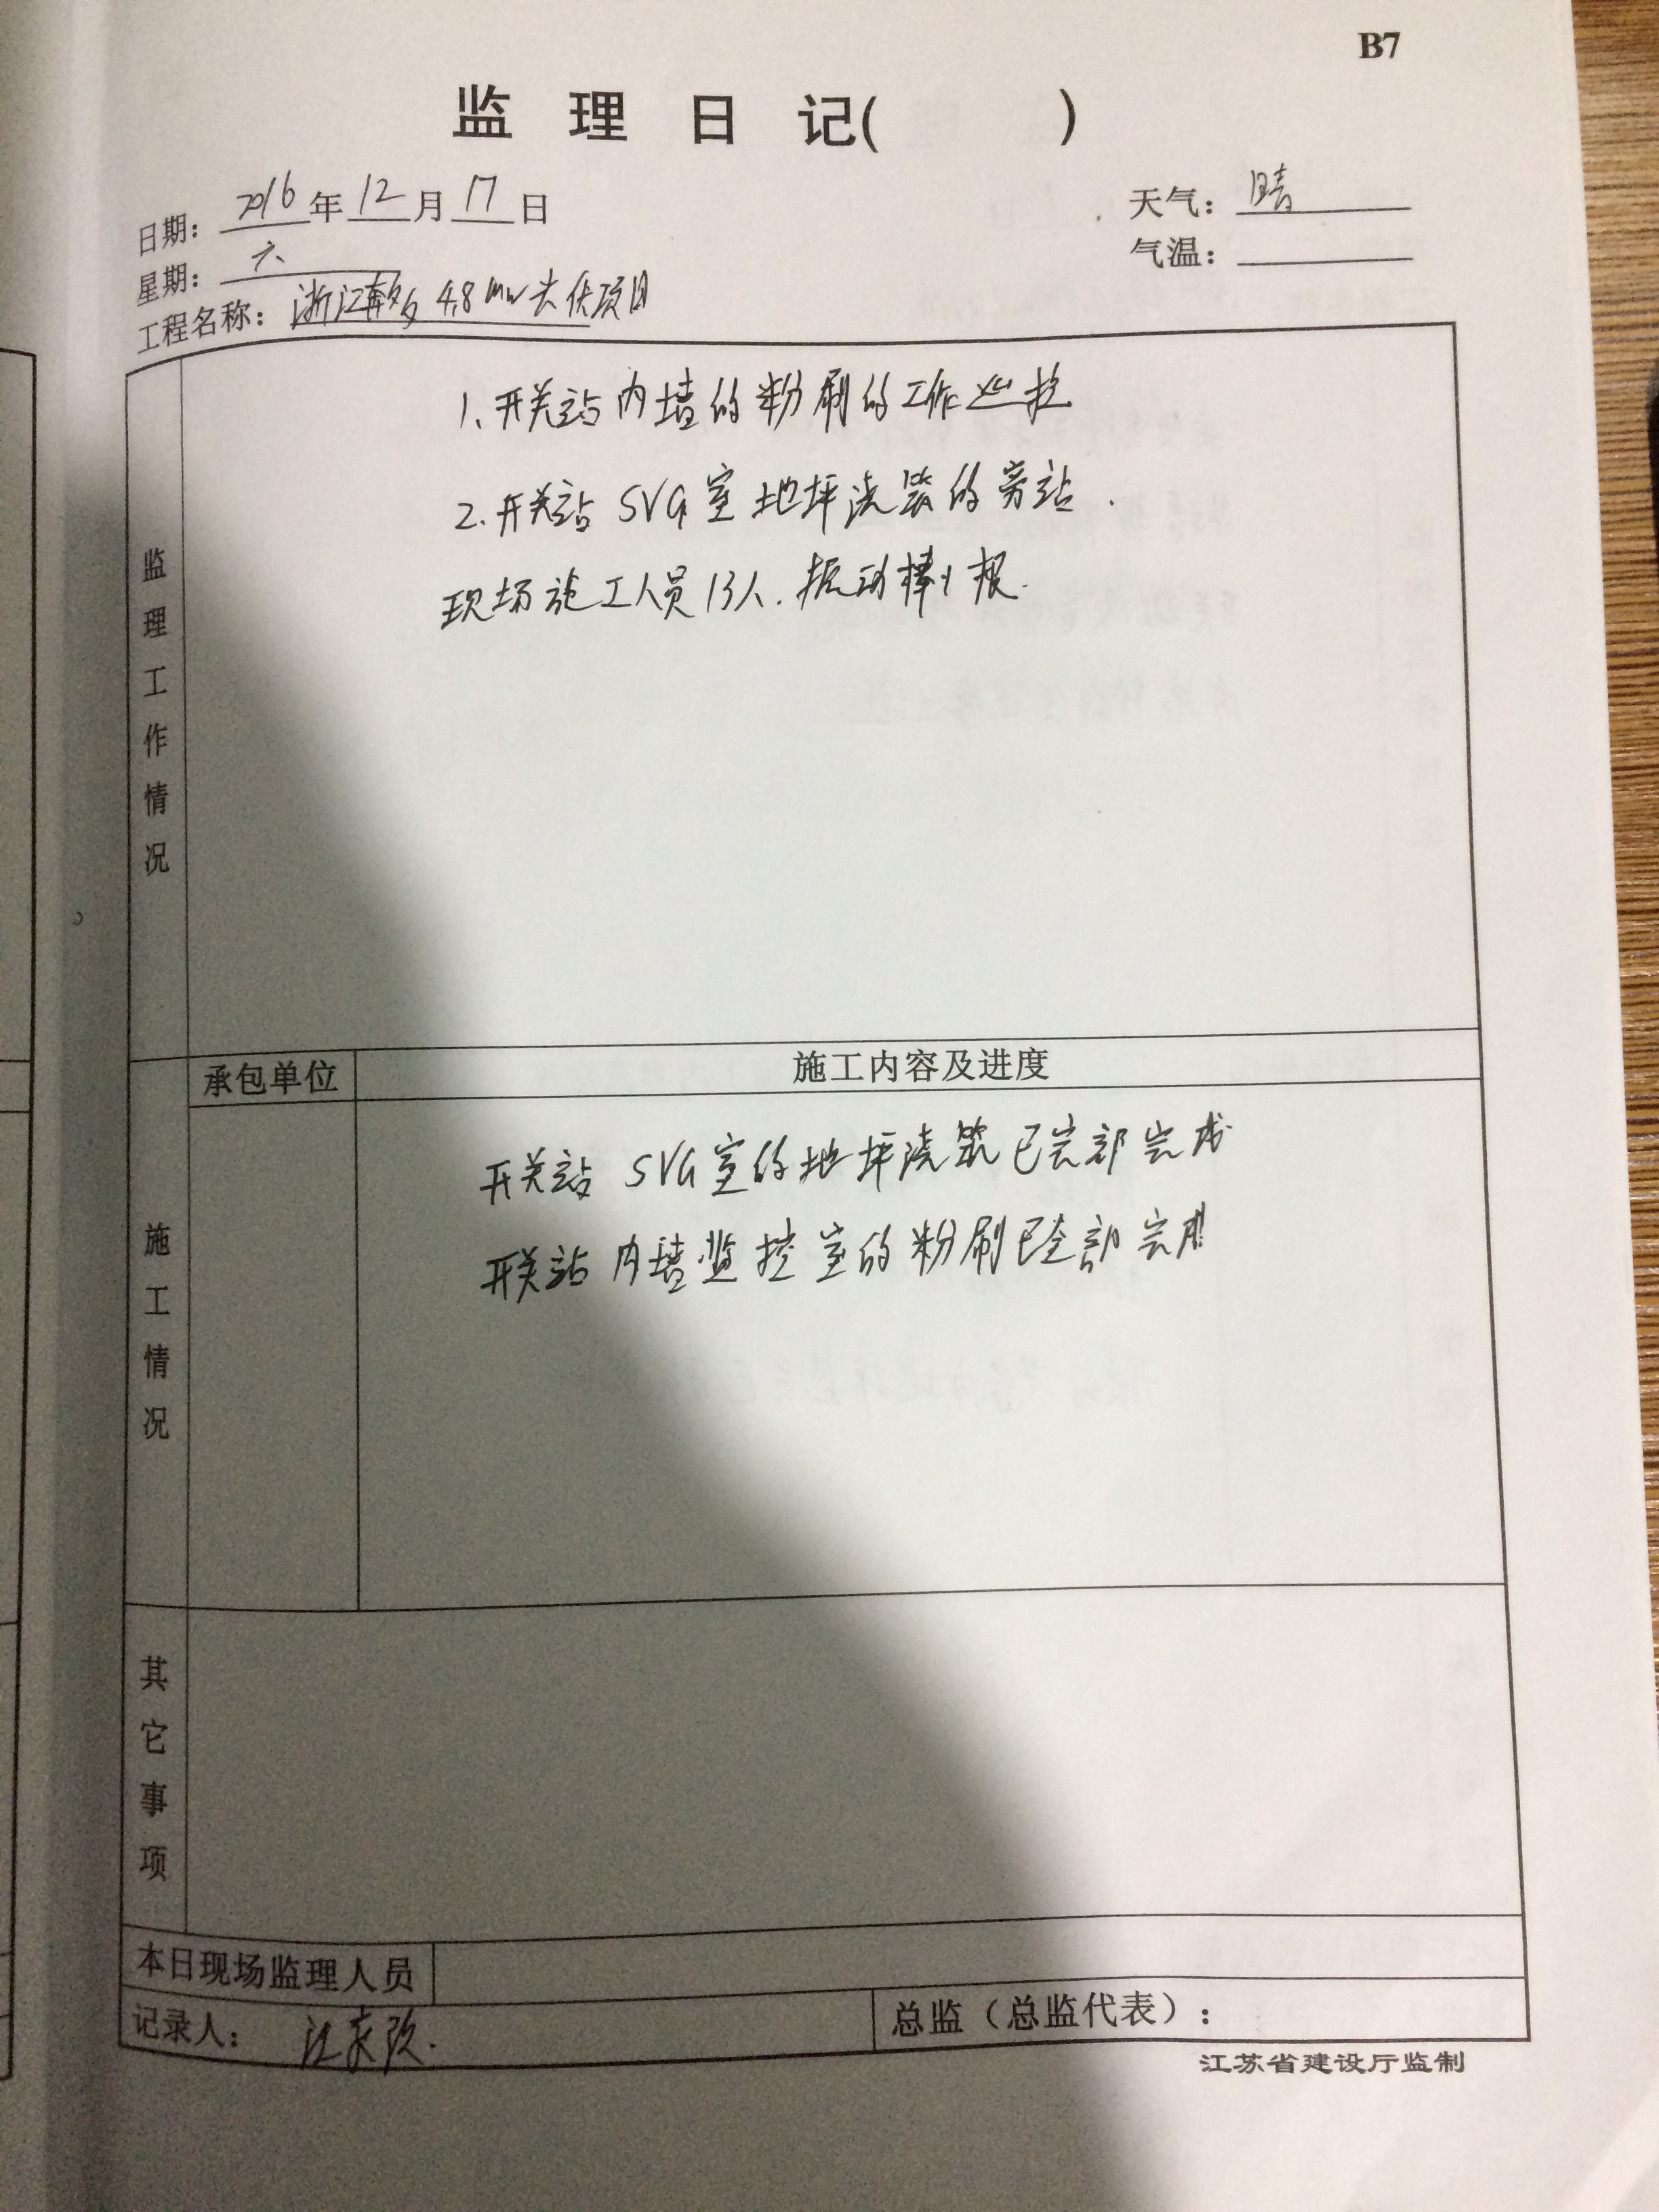 B7
监 理 日 记( )
日期: 2016 年 12 月 17 日
天气: 晴
星期: 六
气温:
工程名称: 浙江 4.8MW光伏项目
监理工作情况
1、开关站内墙的粉刷的工作巡控
2.开关站SVG室地坪浇筑的旁站.
现场施工人员13人.振动棒1根.
施工情况
承包单位
施工内容及进度
开关站 SVG室的地坪浇筑已完部完成
开关站内墙监控室的粉刷已全部完成
其它事项
本日现场监理人员
记录人: 江
总监（总监代表）:
江苏省建设厅监制